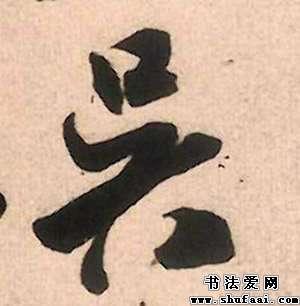 吴
书法爱网
www.shufaai.com